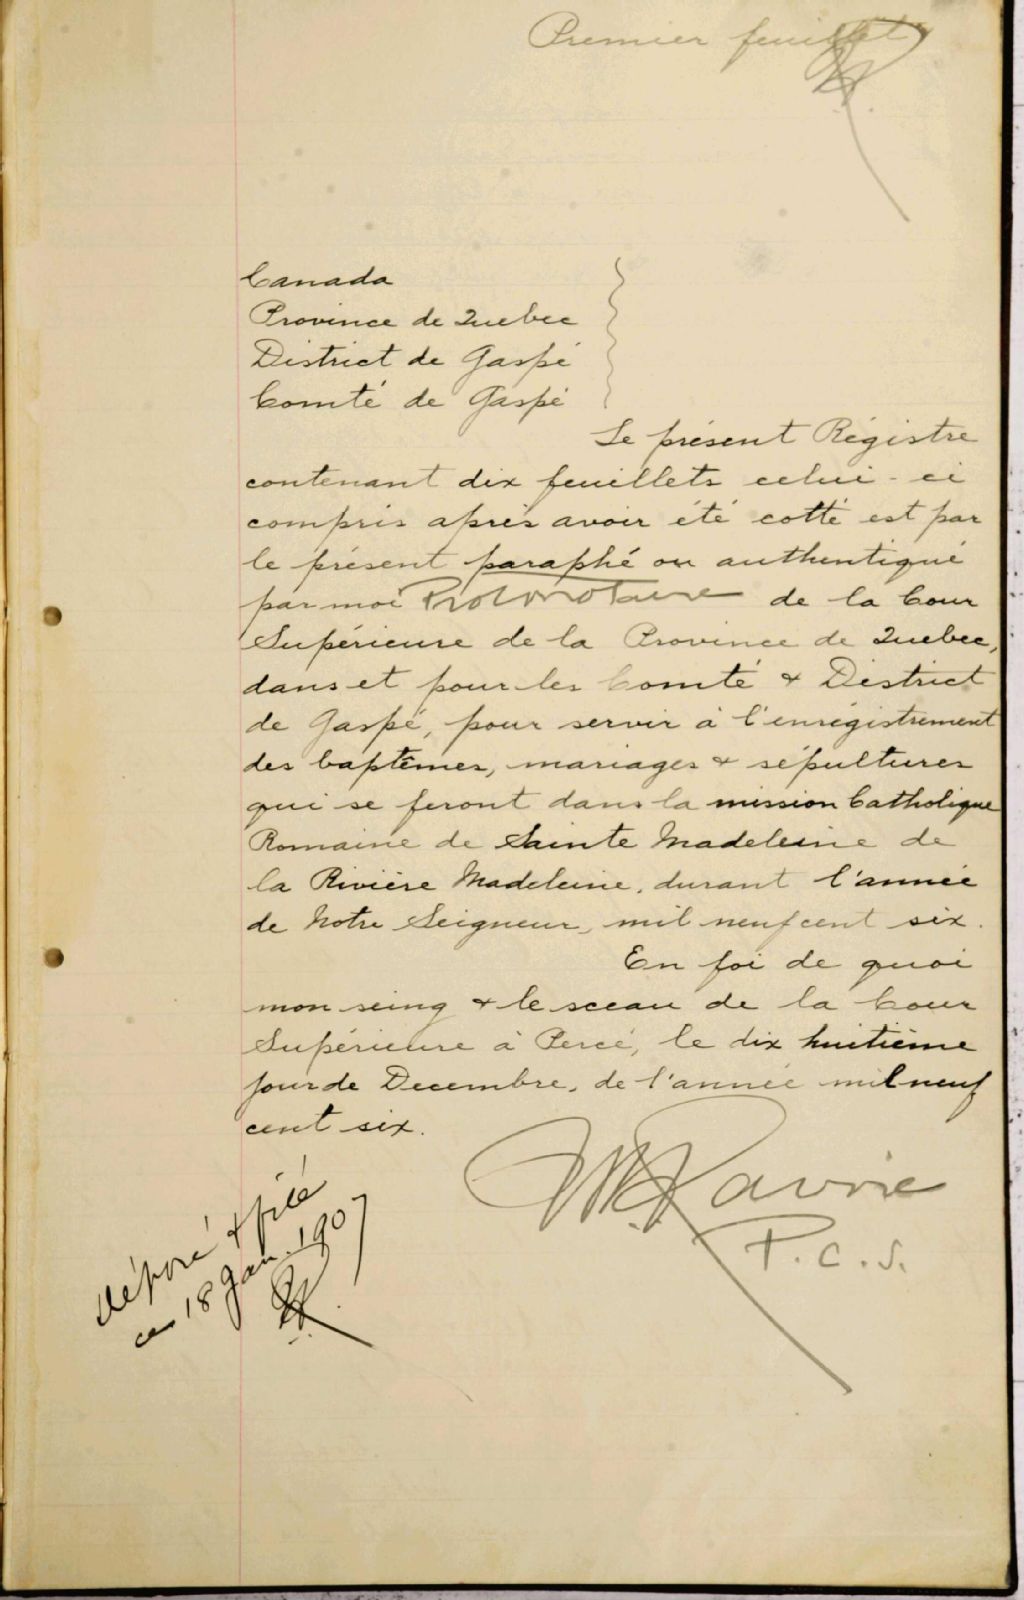 Premier feuillet
Canada
Province de Quebec
District de Gaspé
Comté de Gaspé
Le présent Régistre
contenant dix feuillets celui-ci
compris après avoir été cotté est par
le présent paraphé ou authentiqué
par moi Protonotaire de la Cour
Supérieure de la Province de Quebec,
dans et pour les Comté & District
de Gaspé, pour servir à l'enrégistrement
des baptêmes, mariages & sépultures
qui se feront dans la mission Catholique
Romaine de Sainte Madeleine de
la Rivière Madeleine, durant l'année
de Notre Seigneur, mil neuf cent six.
En foi de quoi
mon seing & le sceau de la Cour
Supérieure à Percé, le dix huitième
jour de Decembre, de l'année mil neuf
cent six.
Lavoie
P.C.S.
déposé & filé
ce 18 Jan. 1907